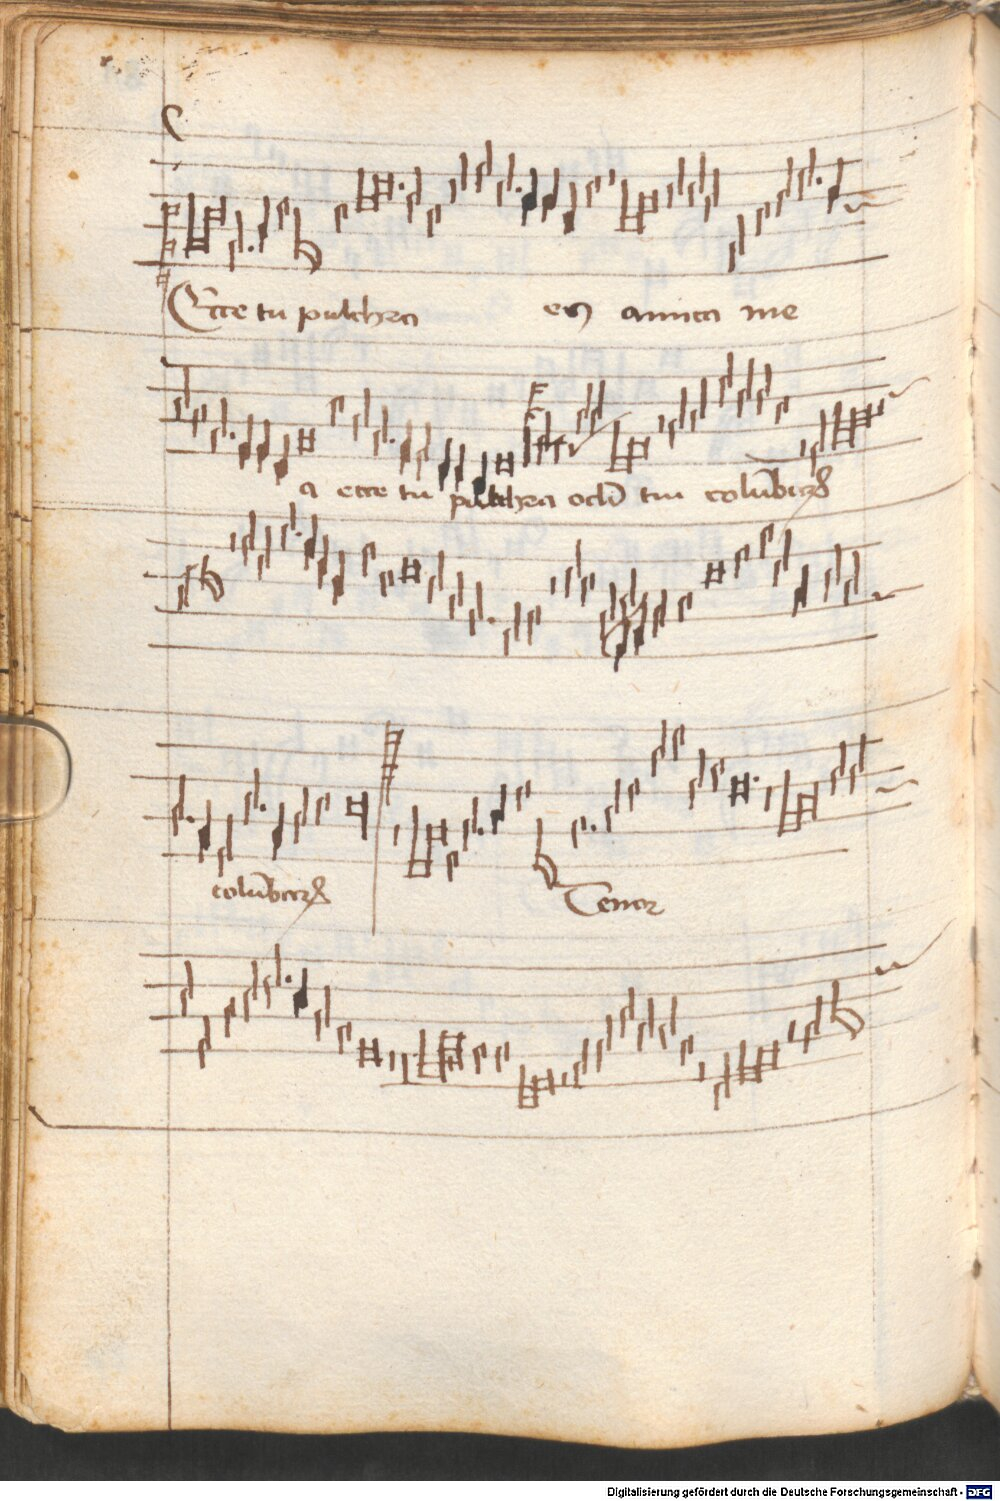 Ecce tu pulchra en amica me
a ecce tu pulchra oculi tui columbarum
columbarum
Tenor
Digitalisierung gefördert durch die Deutsche Forschungsgemeinschaft - DFG